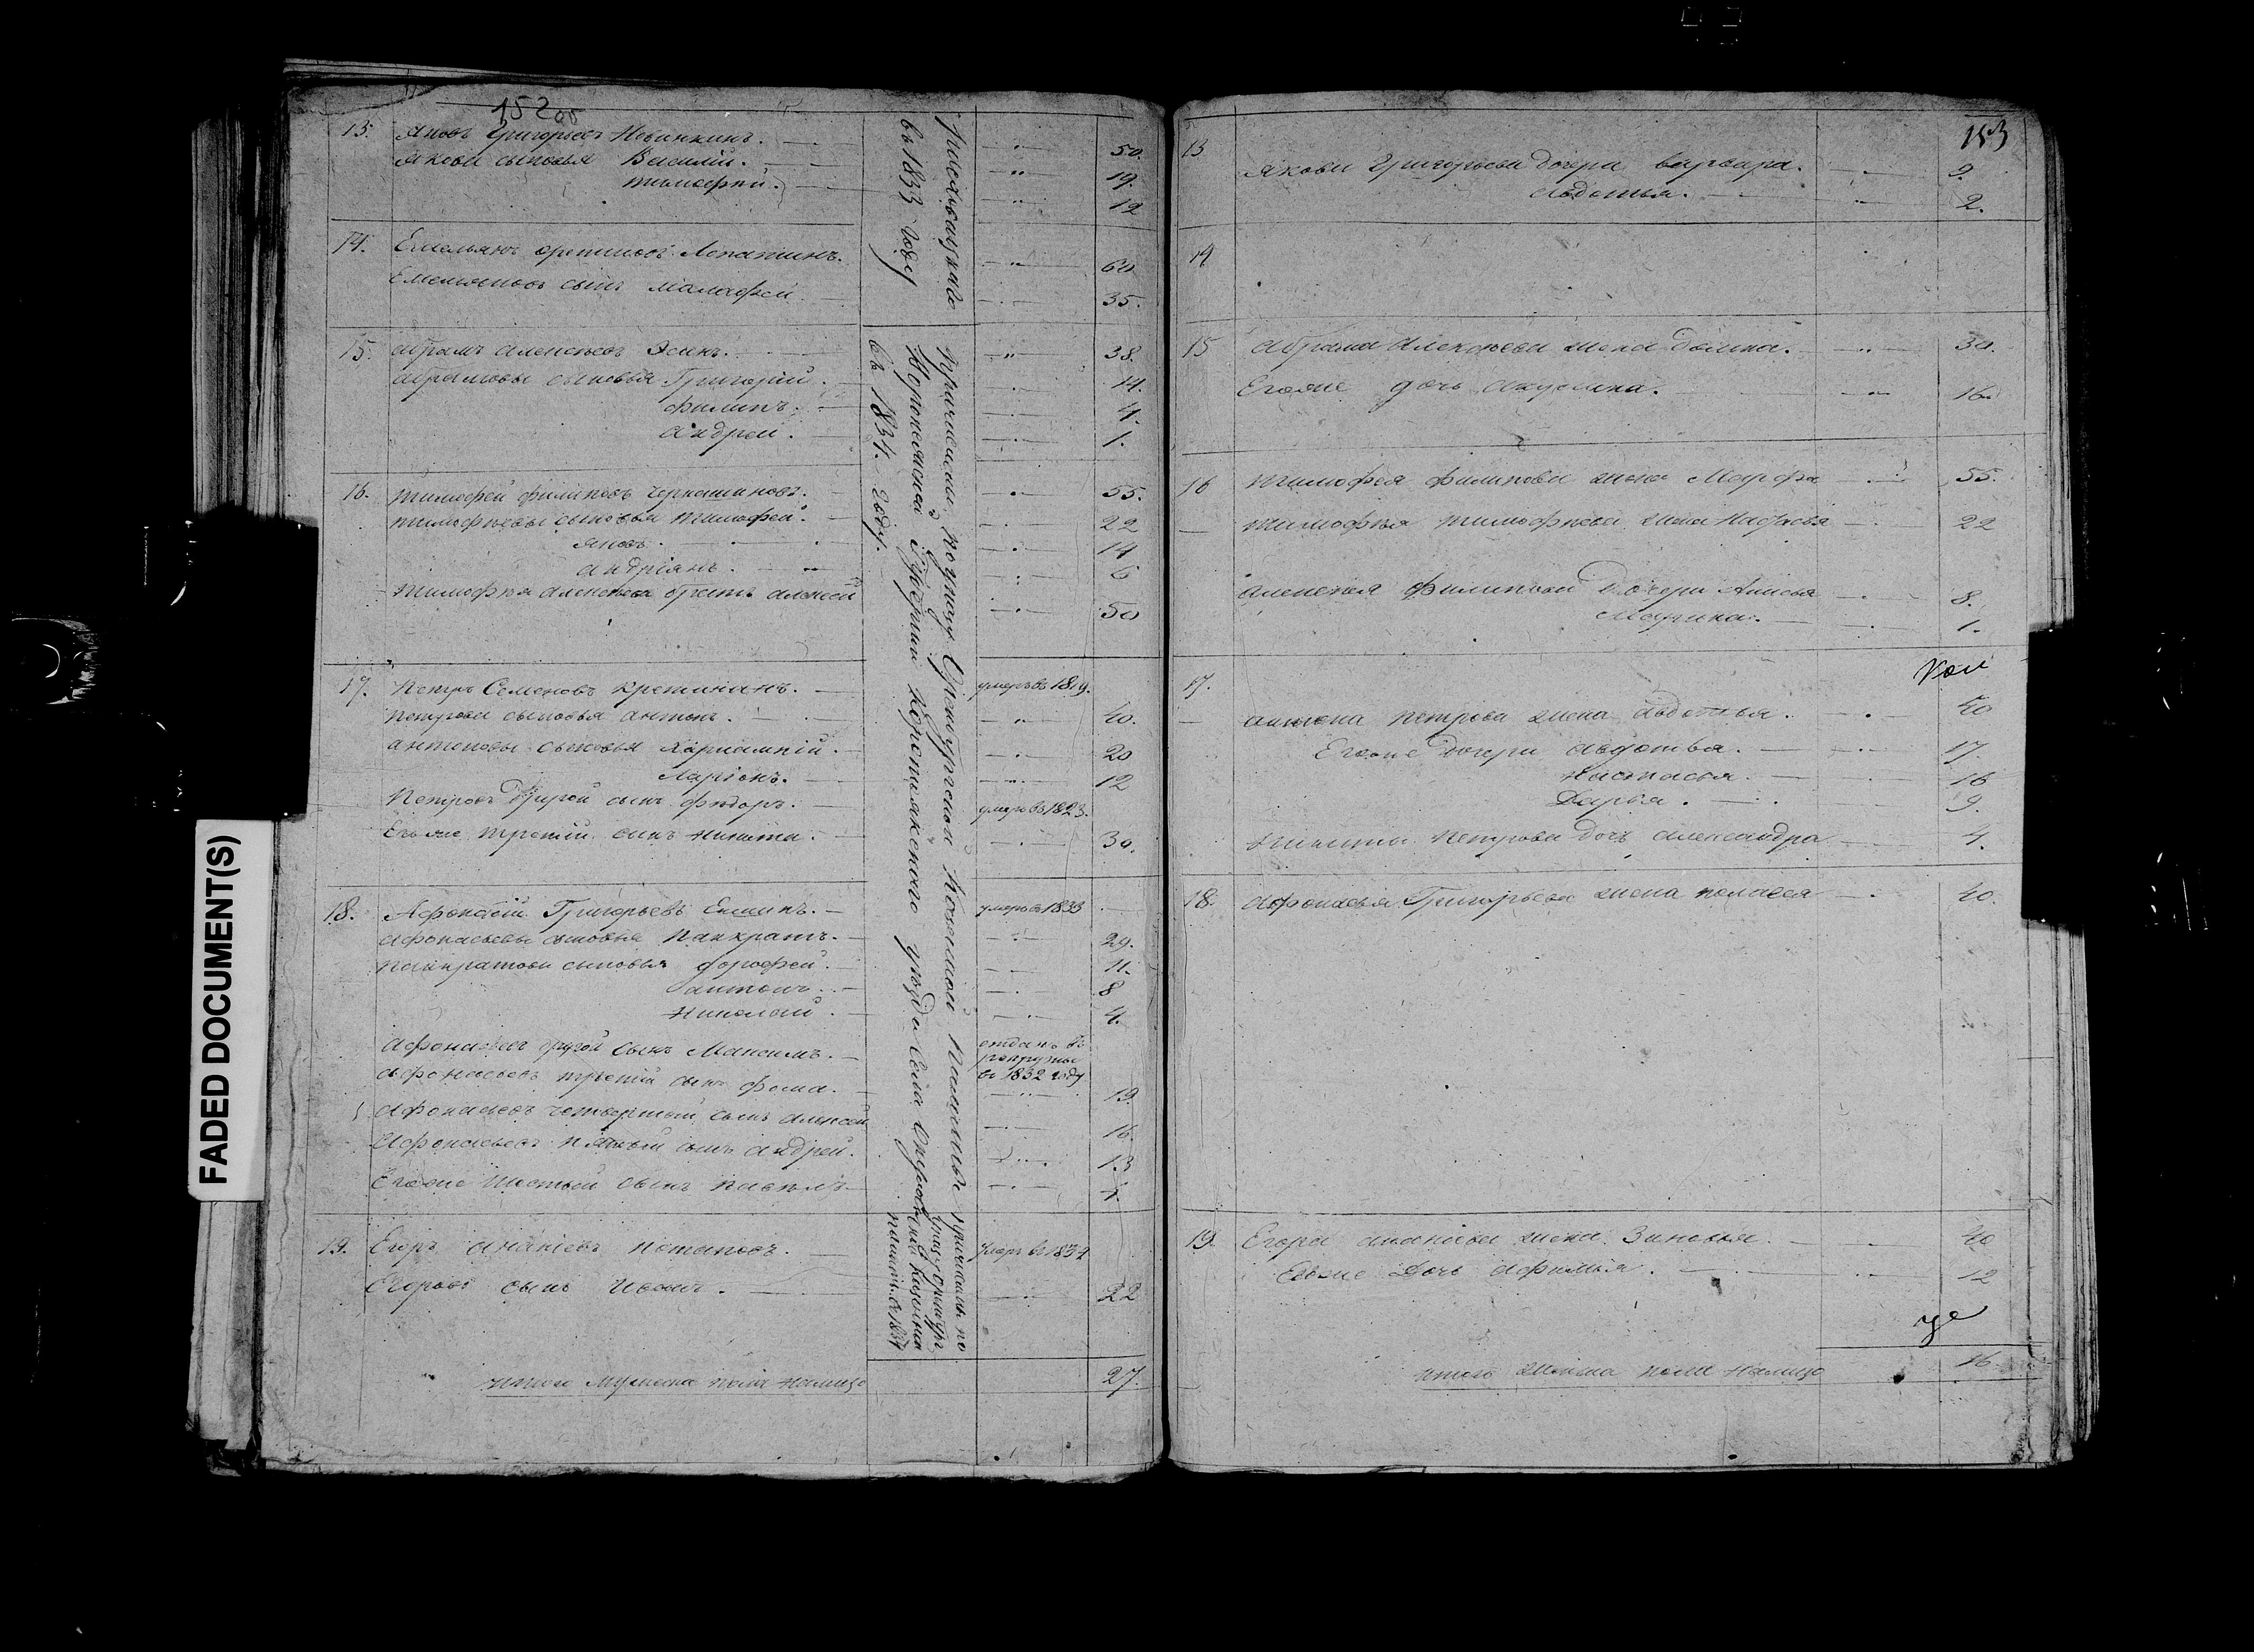 152 об
13. Яковъ Григорьевъ Новинкинъ. 50.
Якова сыновья Василій. 19.
тимофей. 12
14. Емельянъ Лопатинъ. 60
Емельяновъ сынъ малафей 35.
15. абрамъ алексѣевъ Эсинъ. 38.
абрамовы сыновья Григорій. 14.
филипъ. 4.
андрей. 1.
16. тимофей филиповъ черкашиновъ. 55.
тимофѣевы сыновья тимофей. 22
яковъ. 14
андріянъ. 6
тимофѣя алексѣева братъ алексей 50
17. Петръ Семеновъ умеръ въ 1819.
петрова сыновья антонъ. 40.
антоновы сыновья харлампій. 20
Ларіонъ. 12
Петровъ другой сынъ федоръ. умеръ въ 1823.
Егоже третій сынъ никита. 30.
18. Афонасій Григорьевъ Екшинъ. умеръ в 1833
афонасьевы сыновья Панкратъ. 29.
панкратовы сыновья дорофей. 11.
антонъ. 8
николай. 4.
афонасьевъ другой сынъ Максимъ. отданъ въ
рекруты
въ 1832 году
афонасьевъ третій сынъ фома. 19.
афонасьевъ четвертый сынъ алексей 16.
Афонасьевъ пятый сынъ андрей. 13
Егоже шестый сынъ павелъ
19. Егоръ ананіевъ потаповъ. умеръ въ 1834
Егоровъ сынъ Иванъ. 22
итого мужеска пола налицо 27.
въ 1833 году
причислены по указу Оренбургской Казенной Палаты
Воронежской Губерніи Коротоякского уѣзда села
въ 1834. году.
причисленъ по
указу оренбург
казенной
палаты. в 1834
153
13 Якова Григорьева дочери варвара. 9.
Авдотья. 2.
14
15 абрама алексѣева жена домна. 30.
Егоже дочь акулина. 16.
16 тимофея филипова жена Марфа 55.
тимофѣя тимофѣева жена настасья 22
алексѣя филипова дочери Анисья 8.
Марина. 1.
17. антона петрова жена авдотья. 40
Егоже дочери авдотья. 17.
настасья. 16
Дарья. 9.
никиты петрова дочь александра 4.
18. афонасья Григорьева жена пелагея 40.
19. Егора ананіева жена Зиновья. 40
Егоже дочь афимья. 12
итого женска пола налицо 16.
FADED DOCUMENT(S)